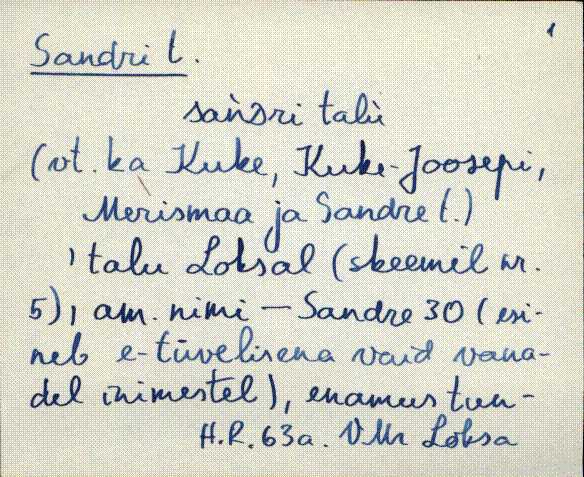 1
Sandri t.
sanᴅri talù
(vt. ka Kuke, Kuke-Joosepi,
Merismaa ja Sandre t.)
' talu Loksal (skeemil nr.
5)', am. nimi — Sandre 30 (esi-
neb e-tüvelisena vaid vana-
del inimestel), enamus tun-
H.R. 63a. VMr Loksa